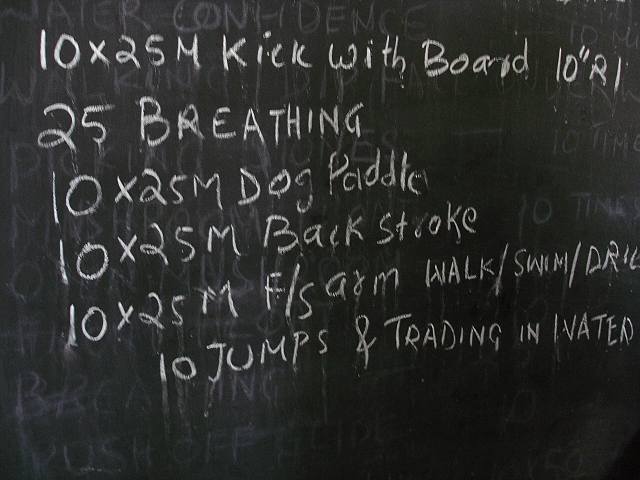 WATER CONFIDENCE
10x25M Kick with Board 10"R1
25 BREATHING
10x25M Dog Paddle
10x25M Back stroke
10x25M F/S arm WALK/SWIM/DRIL
10 JUMPS & TRADING IN WATER